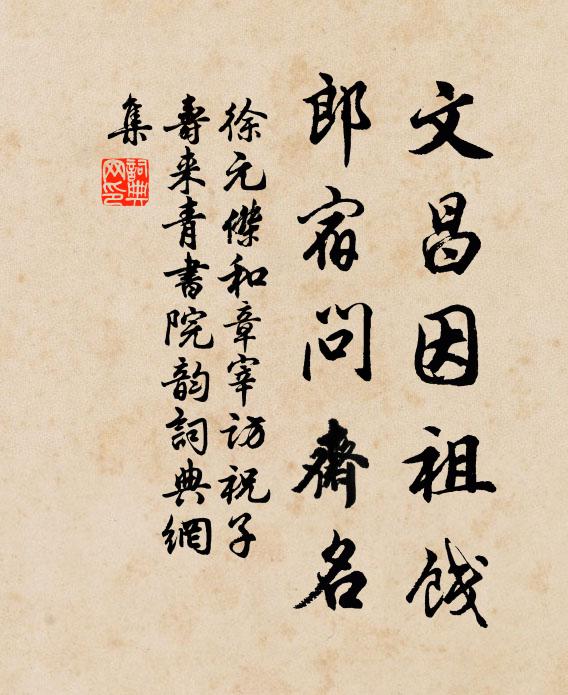 文昌因祖饯
郎宿问斋名
徐元傑和章宰访祝子
寿来青書院韵詞典網
集
詞典网印